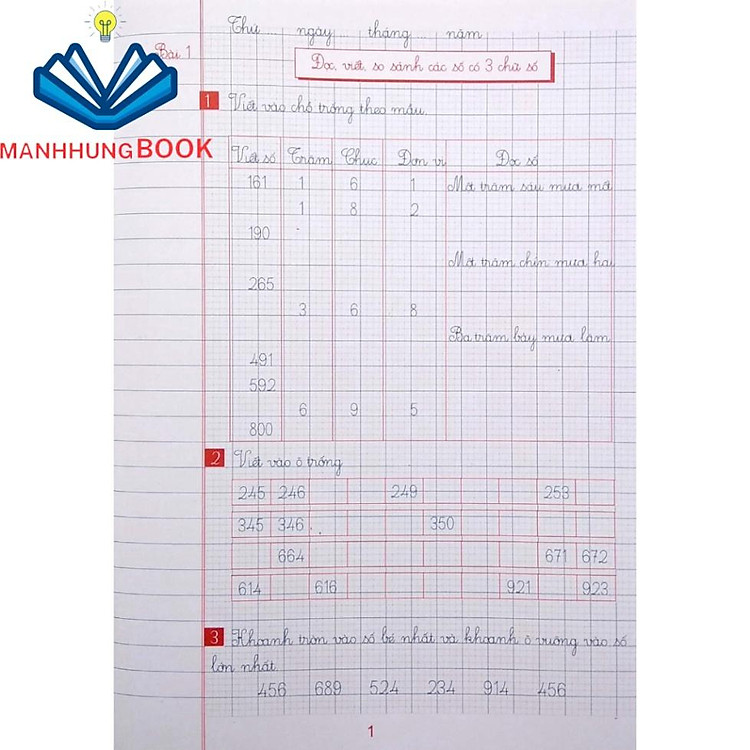 MANHHUNG BOOK
Thứ ... ngày ... tháng ... năm
Bài 1
Đọc, viết, so sánh các số có 3 chữ số
1 Viết vào chỗ trống theo mẫu.
Viết số Trăm Chục Đơn vị Đọc số
161 1 6 1 Một trăm sáu mươi mốt
1 8 2
190
Một trăm chín mươi hai
265
3 6 8
Ba trăm bảy mươi lăm
491
592
6 9 5
800
2 Viết vào ô trống
245 246 249 253
345 346 350
664 671 672
614 616 921 923
3 Khoanh tròn vào số bé nhất và khoanh ô vuông vào số
lớn nhất.
456 689 524 234 914 456
1